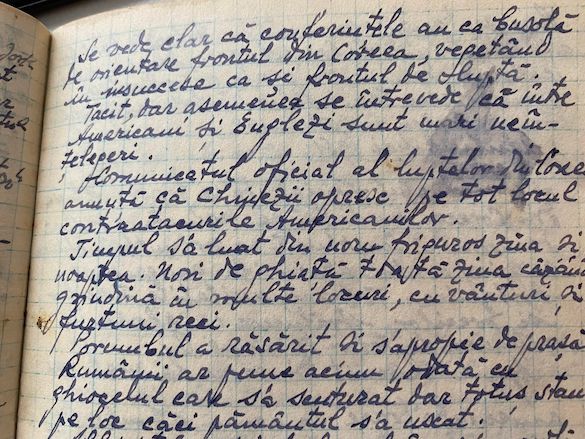 Se vede clar că conferințele au ca busolă
de orientare frontul din Coreea, vegetând
în insuccese ca și frontul de luptă.
Tacit, dar asemenea se întrevede că între
Americani și Englezi sunt mari neîn-
țelegeri.
Comunicatul oficial al luptelor din Coreea
anunță că Chinezii opresc pe tot locul
contraatacurile Americanilor.
Timpul s'a luat din nou friguros ziua și
noaptea. Nori de ghiață toată ziua căzând
grindină în multe locuri, cu vânturi și
furtuni reci.
Porumbul a răsărit și s'apropie de prașă
Românii ar pune acum odată cu
ghiocelul care s'a scuturat dar totuș stau
pe loc căci pământul s'a uscat.